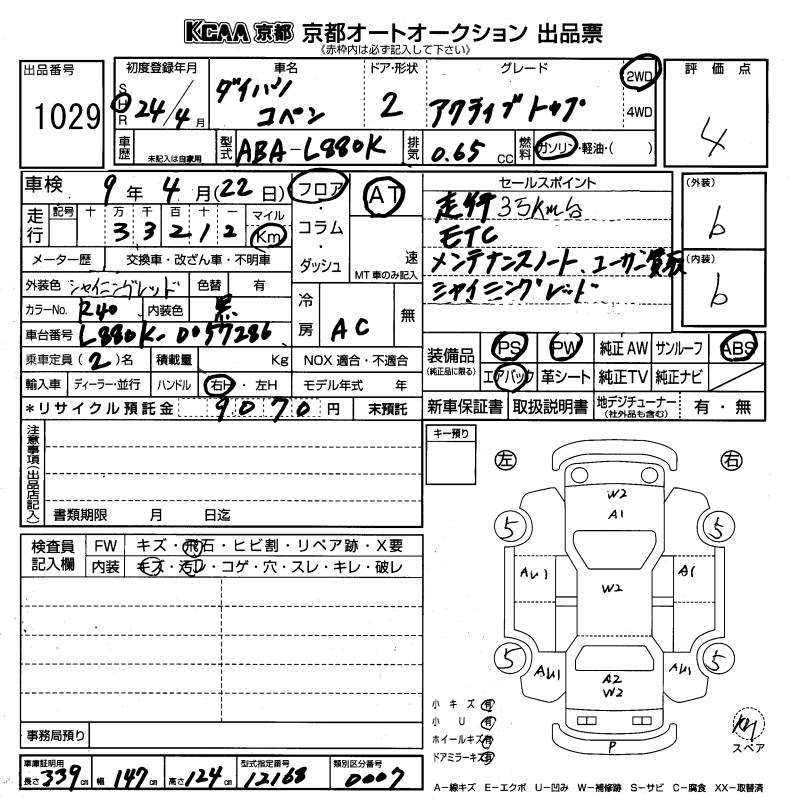 KCAA 京都 京都オートオークション 出品票
《赤枠内は必ず記入して下さい》
出品番号
1029
初度登録年月
S
H
R
24/4月
車名
ダイハツ
コペン
ドア・形状
2
グレード
アクティブトップ
2WD
4WD
評価点
4
車歴
未記入は自家用
型式
ABA-L880K
排気
0.65 CC
燃料
ガソリン・軽油・( )
車検
9年 4月(22日)
走行
記号 十 万 千 百 十 一
3 3 2 1 2
マイル
Km
フロア
・
コラム
・
ダッシュ
AT
速
MT車のみ記入
メーター歴 交換車・改ざん車・不明車
外装色 シャイニングレッド 色替 有
カラーNo. R40 内装色 黒
車台番号 L880K-0057286
冷房
AC
無
乗車定員(2)名 積載量 Kg NOX 適合・不適合
輸入車 ディーラー・並行 ハンドル 右H・左H モデル年式 年
*リサイクル預託金 9070円 未預託
セールスポイント
走行35km台
ETC
メンテナンスノート、ユーザー買取
シャイニングレッド
(外装)
b
(内装)
b
装備品
(純正品に限る)
PS PW 純正AW サンルーフ ABS
エアバック 革シート 純正TV 純正ナビ
新車保証書 取扱説明書 地デジチューナー
(社外品も含む)
有・無
注意事項(出品店記入)
書類期限 月 日迄
キー預り
左
右
検査員
記入欄
FW キズ・飛石・ヒビ割・リペア跡・X要
内装 キズ・汚レ・コゲ・穴・スレ・キレ・破レ
W2
A1
5
5
AU1
W2
A1
5
5
AU1
A2
W2
AU1
P
小キズ 有
小U 有
ホイールキズ 有
ドアミラーキズ 有
スペア
事務局預り
車庫証明用
長さ 339cm 幅 147cm 高さ 124cm
型式指定番号
12168
類別区分番号
0007
A-線キズ E-エクボ U-凹み W-補修跡 S-サビ C-腐食 XX-取替済